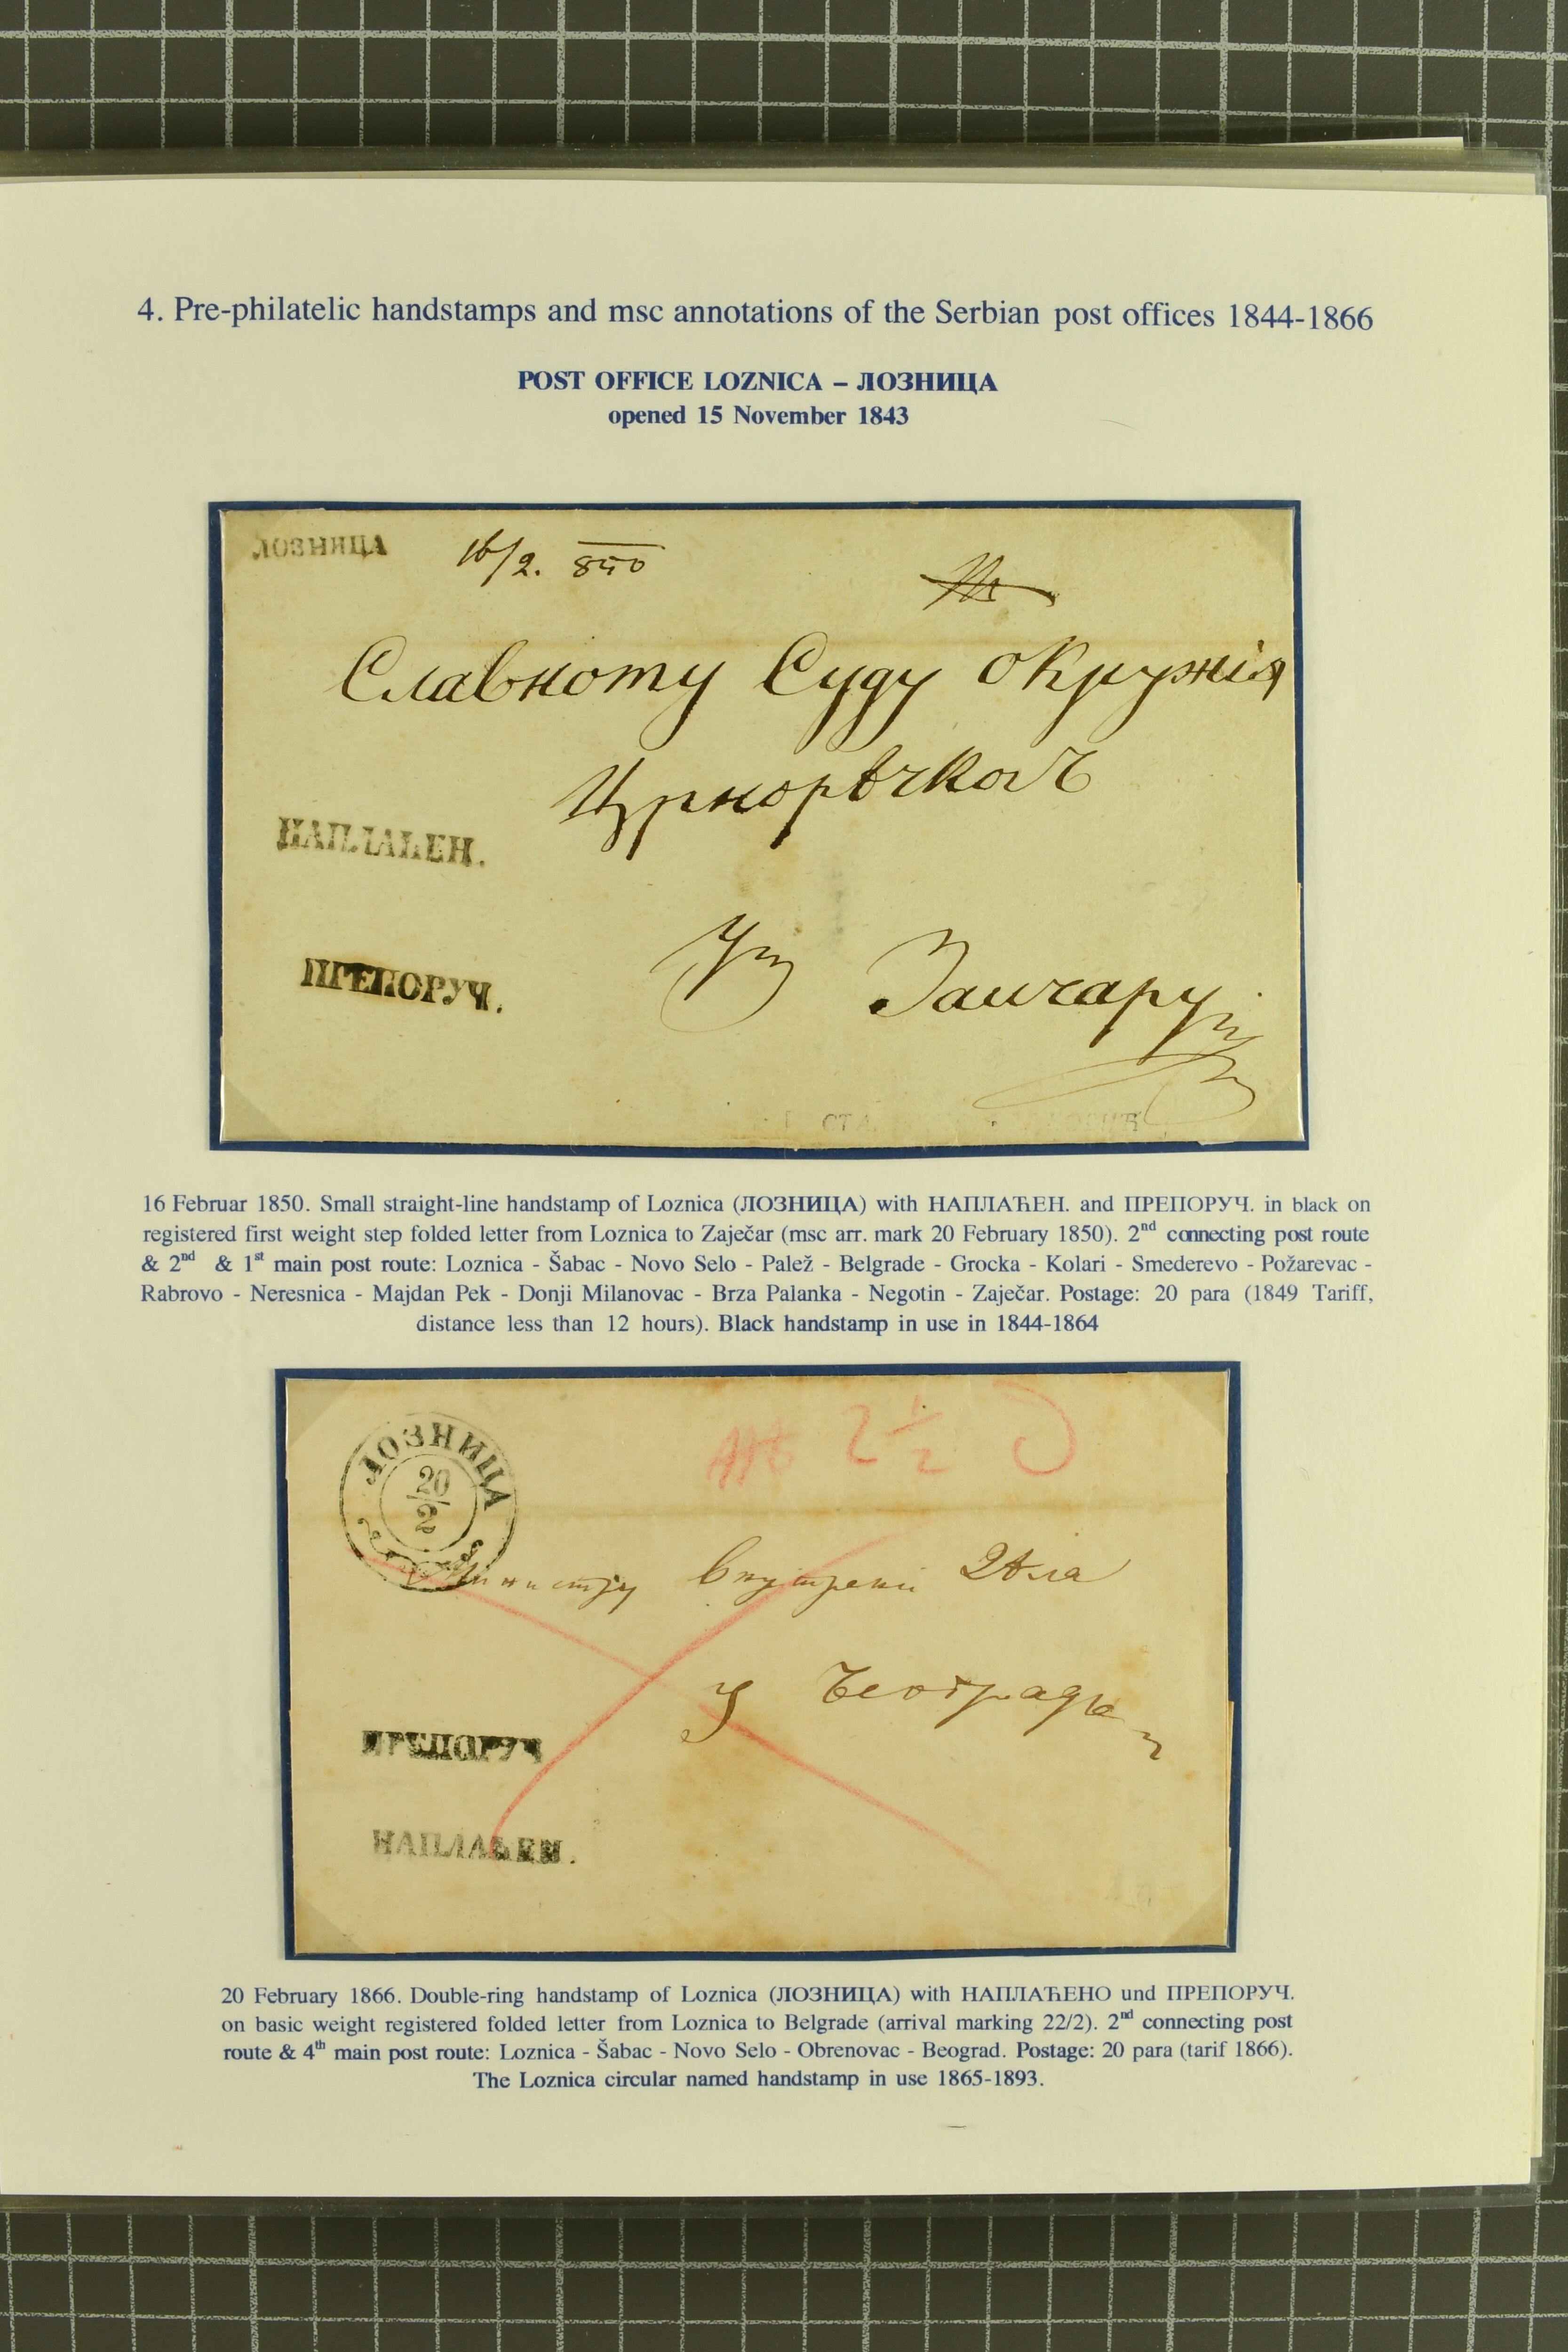 4. Pre-philatelic handstamps and msc annotations of the Serbian post offices 1844-1866
POST OFFICE LOZNICA – ЛОЗНИЦА
opened 15 November 1843
ЛОЗНИЦА 16/2. 850
Славному Суду окружія
Црнорѣчкогъ
НАПЛАЋЕН.
У Заичару
ПРЕПОРУЧ.
16 Februar 1850. Small straight-line handstamp of Loznica (ЛОЗНИЦА) with НАПЛАЋЕН. and ПРЕПОРУЧ. in black on
registered first weight step folded letter from Loznica to Zaječar (msc arr. mark 20 February 1850). 2nd connecting post route
& 2nd & 1st main post route: Loznica - Šabac - Novo Selo - Palež - Belgrade - Grocka - Kolari - Smederevo - Požarevac -
Rabrovo - Neresnica - Majdan Pek - Donji Milanovac - Brza Palanka - Negotin - Zaječar. Postage: 20 para (1849 Tariff,
distance less than 12 hours). Black handstamp in use in 1844-1864
ЛОЗНИЦА
20
2
2 1/2
Министру Внутрени Дѣла
У Београду
ПРЕПОРУЧ
НАПЛАЋЕН.
20 February 1866. Double-ring handstamp of Loznica (ЛОЗНИЦА) with НАПЛАЋЕНО und ПРЕПОРУЧ.
on basic weight registered folded letter from Loznica to Belgrade (arrival marking 22/2). 2nd connecting post
route & 4th main post route: Loznica - Šabac - Novo Selo - Obrenovac - Beograd. Postage: 20 para (tarif 1866).
The Loznica circular named handstamp in use 1865-1893.